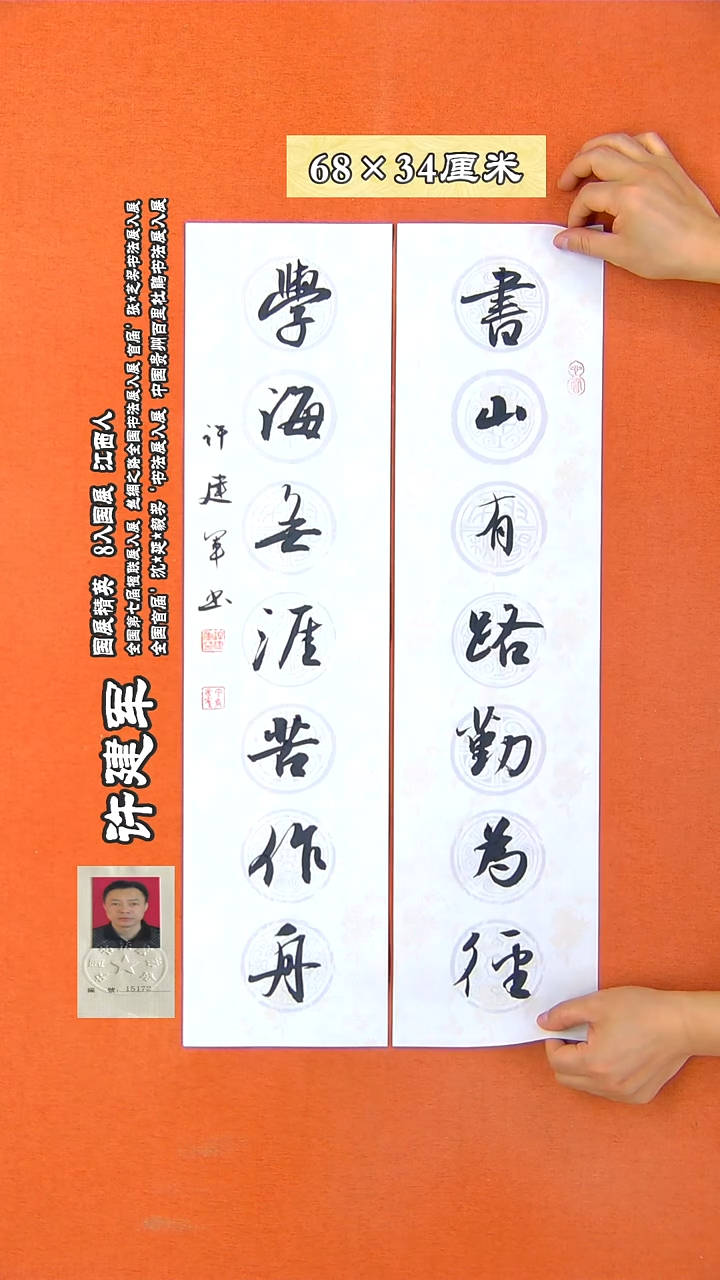 68×34厘米
書山有路勤為徑
學海無涯苦作舟
许建军书
许建军
国展精英 8入国展 江西人
全国第七届楹联展入展 丝绸之路全国书法展入展 首届‘张*芝奖书法展入展
全国首届‘沈*延*毅奖‘书法展入展 中国贵州百里杜鹃书法展入展
编 号: 15172